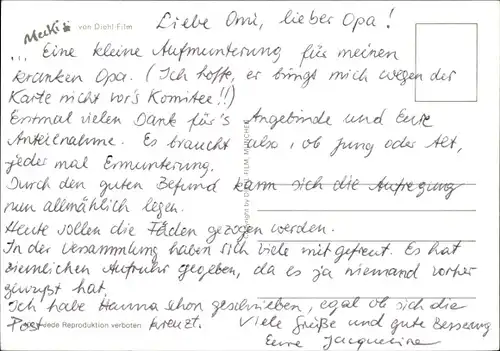 Mecki von Diehl-Film
Liebe Omi, lieber Opa!
... Eine kleine Aufmunterung für meinen
kranken Opa. (Ich hoffe, er bringt mich wegen der
Karte nicht vor's Komitee!!)
Erstmal vielen Dank für's Angebinde und Eure
Anteilnahme. Es braucht also, ob Jung oder Alt,
jeder mal Ermunterung.
Durch den guten Befund kann sich die Aufregung
nun allmählich legen.
Heute sollen die Fäden gezogen werden.
In der Versammlung haben sich viele mit gefreut. Es hat
ziemlichen Aufruhr gegeben, da es ja niemand vorher
gewußt hat.
Ich habe Hanna schon geschrieben, egal ob sich die
Post kreuzt. Viele Grüße und gute Besserung
Eure Jacqueline
Jede Reproduktion verboten
Copyright by DIEHL-FILM, MÜNCHEN